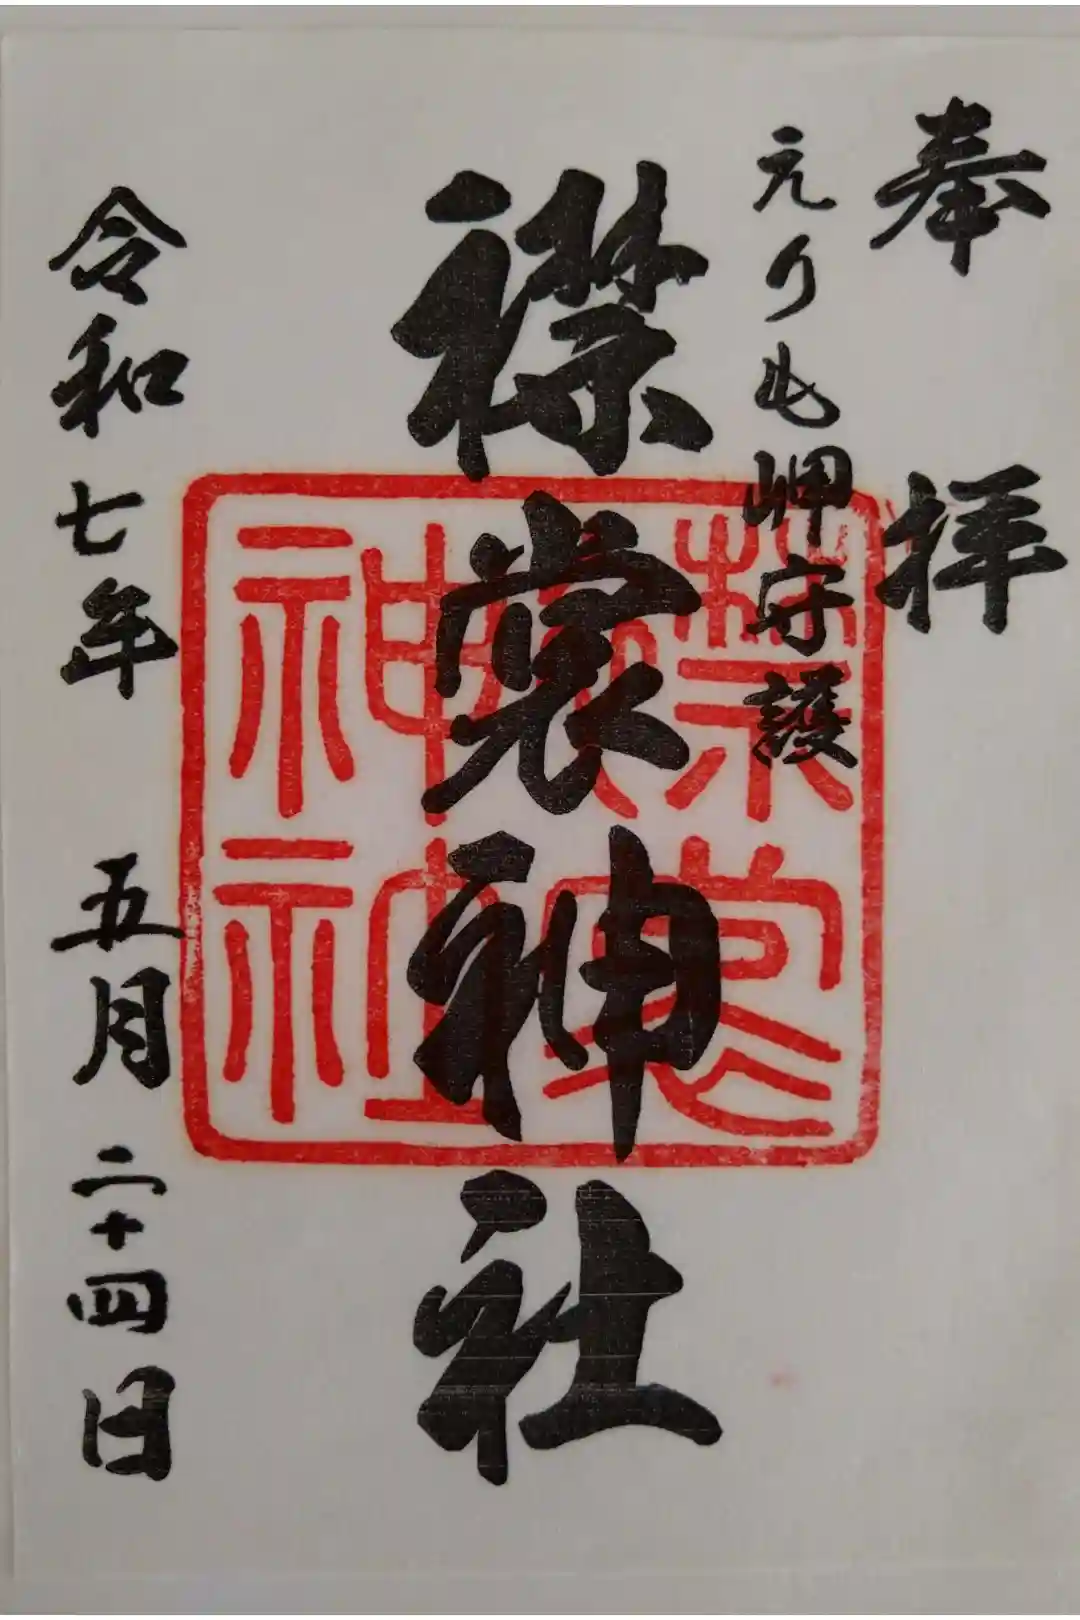 奉拝
えりも岬守護
襟裳神社
令和七年 五月 二十四日
襟裳
神社